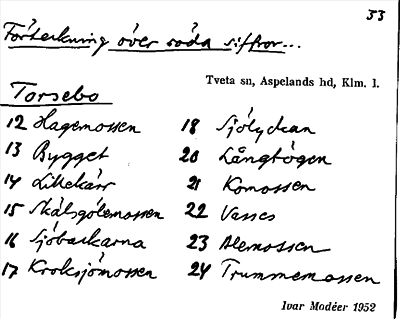 33
Förteckning över röda siffror...
Tveta sn, Aspelands hd, Klm. l.
Torsebo
12 Hagemossen
13 Bygget
14 Lillekärr
15 Skålsgölemossen
16 Sjöbackarna
17 Kroksjömossen
18 Sjölyckan
20 Långhögen
21 Komossen
22 Vasses
23 Alemossen
24 Trummemossen
Ivar Modéer 1952